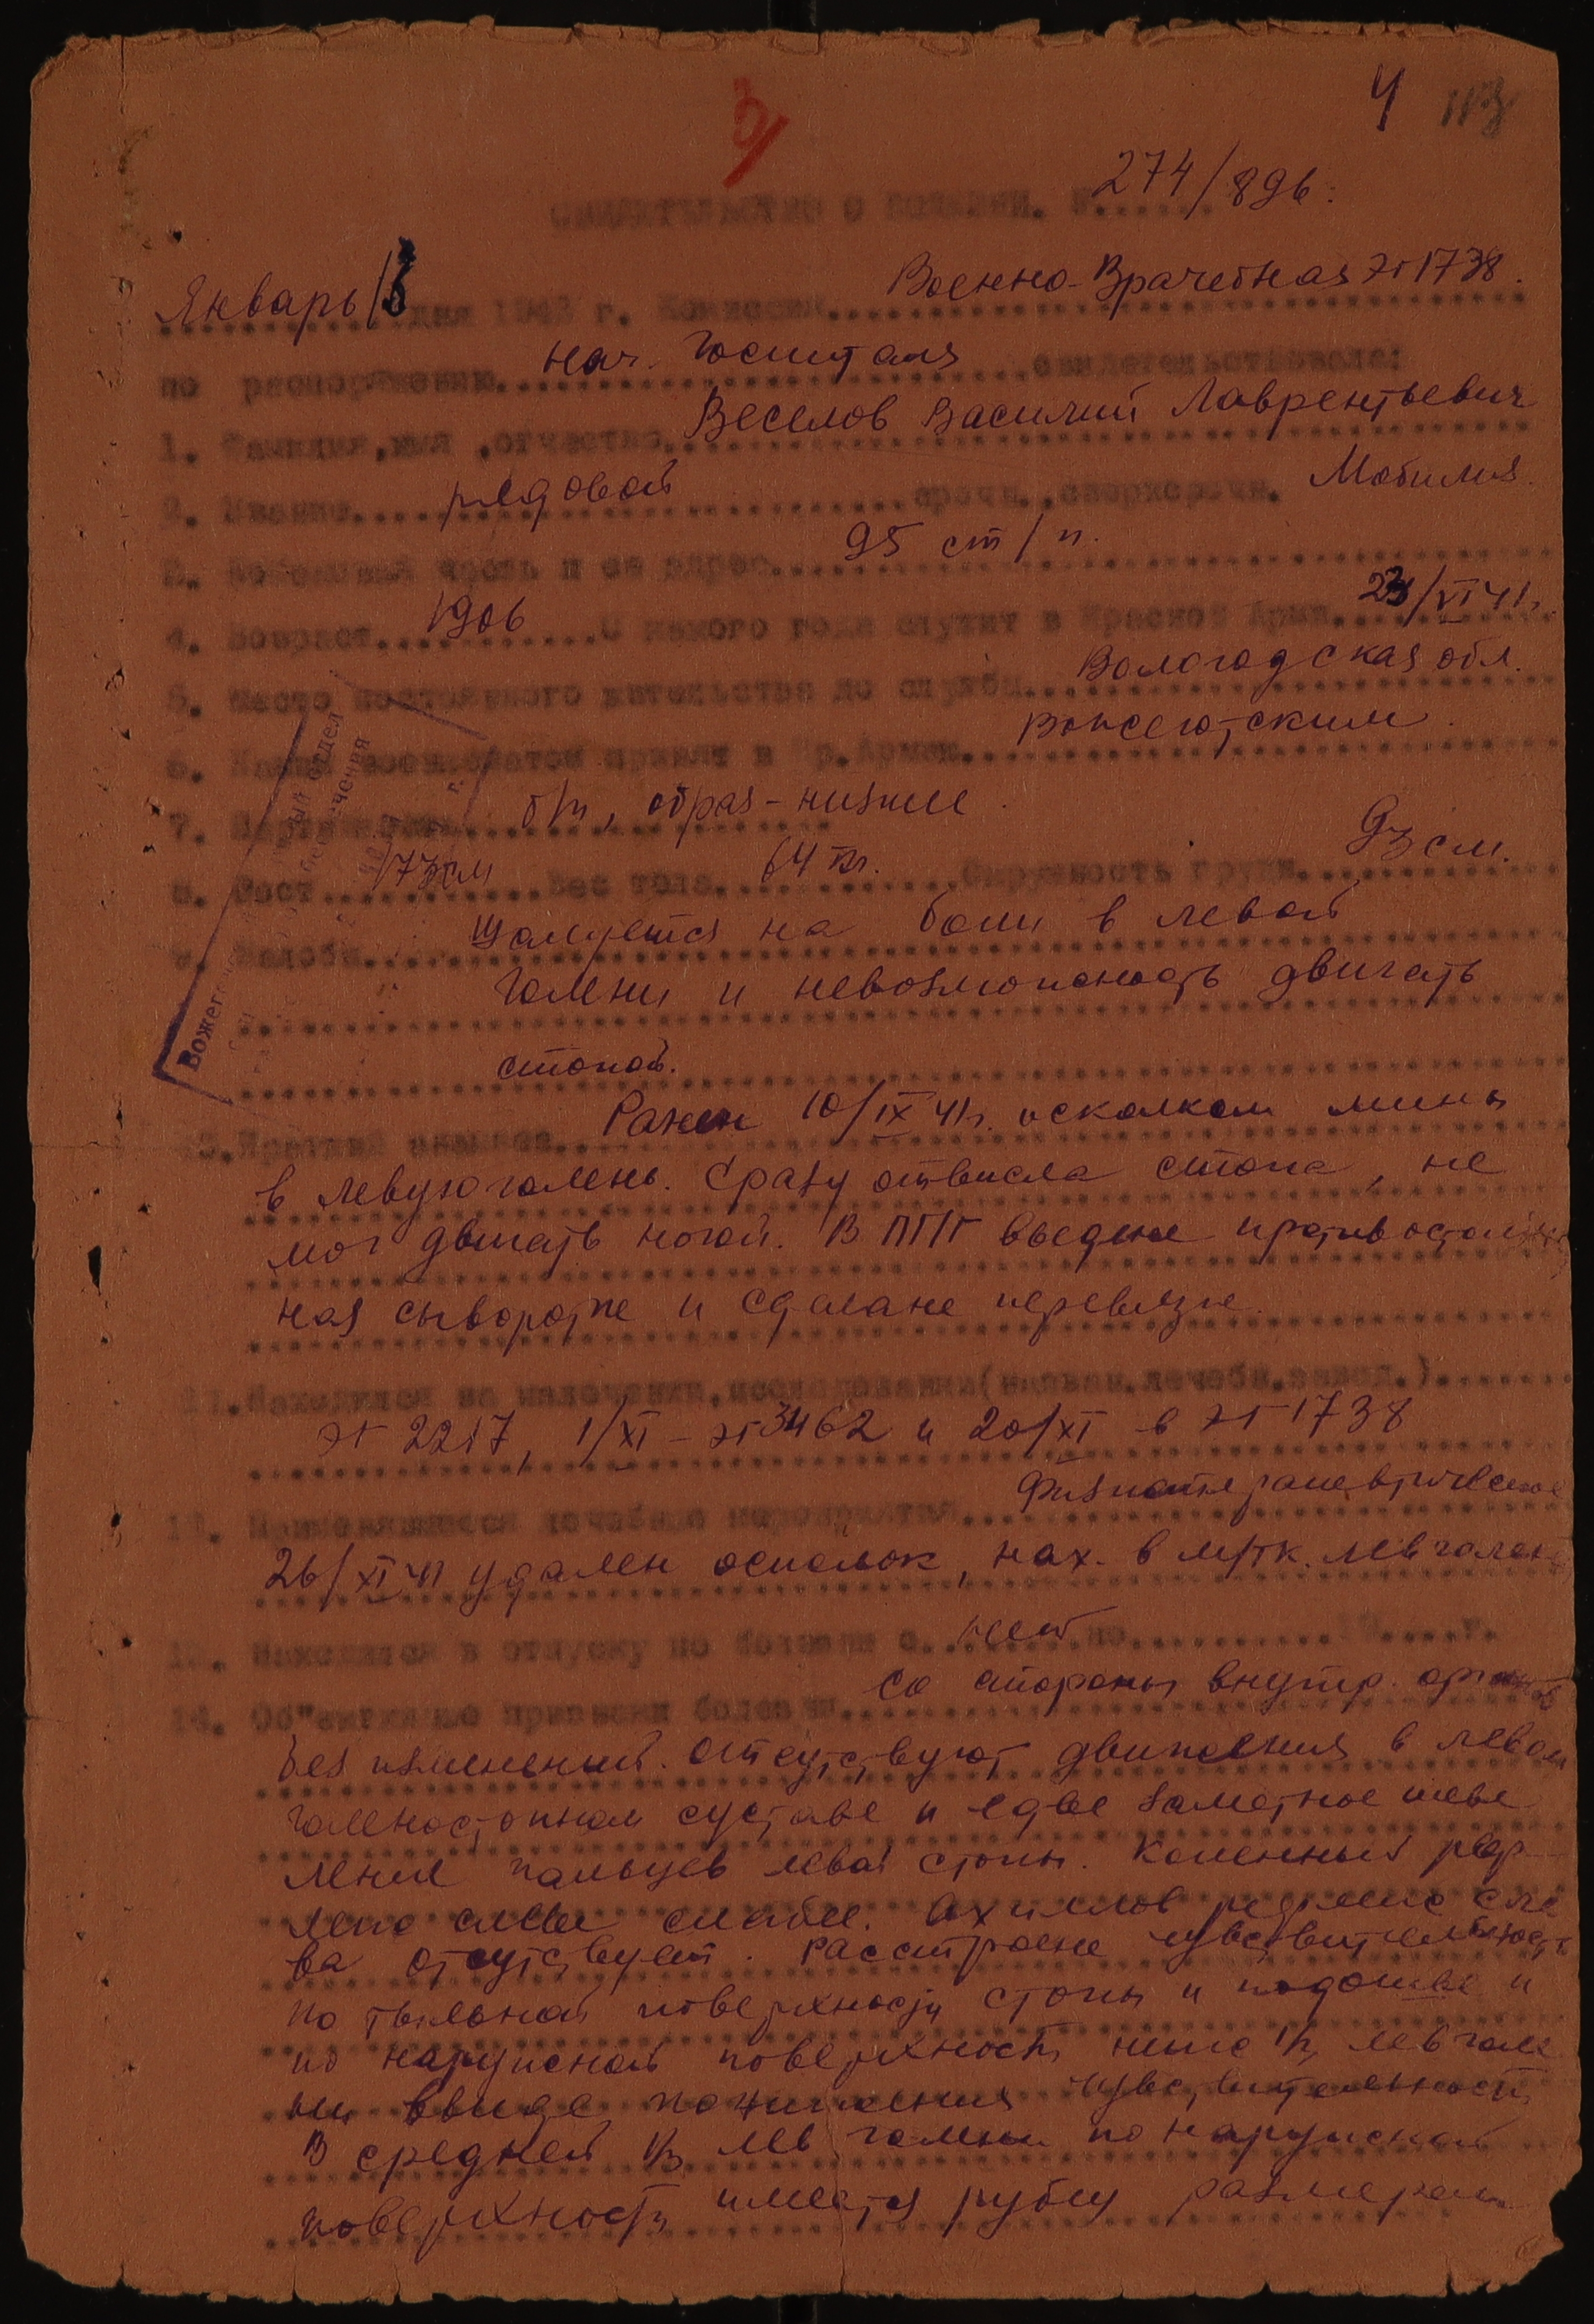 4
274/896.
СВИДЕТЕЛЬСТВО О БОЛЕЗНИ. №......
Январь 13 дня 1942 г. Комиссия Военно-Врачебная ЭГ 1738.
по распоряжению нач. Госпиталя свидетельствовала:
1. Фамилия, имя, отчество Веселов Василий Лаврентьевич
2. Звание рядовой срочн., сверхсрочн. Мобилиз.
3. Войсковая часть и ее адрес 95 ст/п.
4. Возраст 1906 С какого года служит в Красной Арм. 23/VI 41г.
5. Место постоянного жительства до службы Вологодская обл.
6. Каким военкоматом принят в Кр. Армию Вожегодским.
7. Партийность б/п, образ-низшее.
8. Рост 173 см Вес тела 64 кг. Окружность груди 93 см.
9. Жалобы Жалуется на боли в левой
голени и невозможность двигать
стопой.
10. Краткий анамнез Ранен 10/IX 41г. осколком мины
в левую голень. Сразу отвисла стопа, не
мог двигать ногой. В ППГ введена противостолбняч
ная сыворотка и сделана перевязка.
11. Находился на излечении, исследовании (назван. лечебн. завед.)
ЭГ 2217, 1/XI - ЭГ 3462 и 20/XI в ЭГ 1738
12. Применявшиеся лечебные мероприятия Физиотерапевтическое
26/XI 41 удален осколок, нах. в м/тк. лев голени
13. Находился в отпуску по болезни с нет по 19 г.
14. Об"ективные признаки болезни Со стороны внутр. органов
без изменений. Отсутствуют движения в левом
голеностопном суставе и едва заметное шеве
ление пальцев левой стопы. Коленный реф-
лекс слева слабее. Ахиллов рефлекс сле
ва отсутствует. Расстроена чувствительность
по тыльной поверхности стопы и подошве и
по наружной поверхности ниже 1/3 лев голе
ни ввиде понижения чувствительности
В средней 1/3 лев голени по наружной
поверхности имеется рубец размером
Вожег
отдел